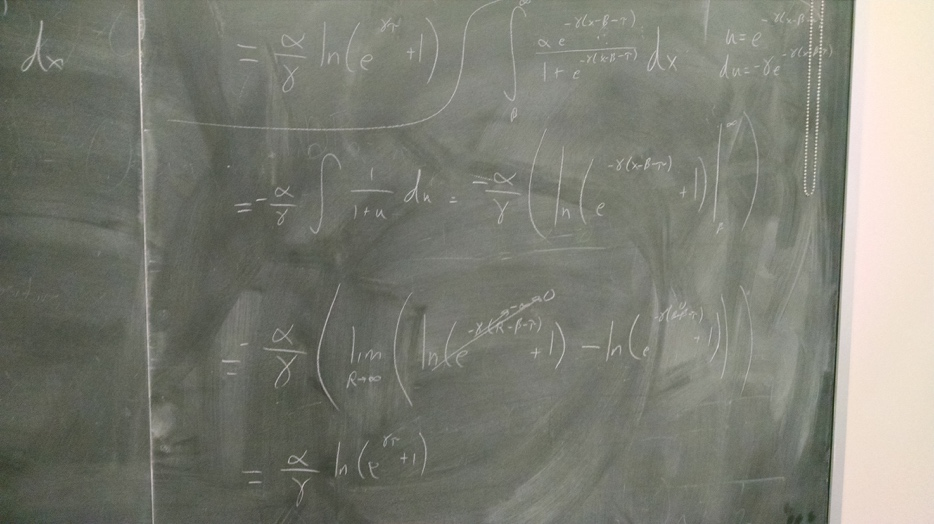 dx
= α/γ ln(e^{γπ} + 1)
∫_β^∞ αe^{-γ(x-β-π)} / (1 + e^{-γ(x-β-π)}) dx
u = e^{-γ(x-β-π)}
du = -γe^{-γ(x-β-π)}
= -α/γ ∫ 1/(1+u) du = -α/γ (ln(e^{-γ(x-β-π)} + 1)|_β^∞)
= -α/γ (lim_{R→∞} (ln(e^{-γ(R-β-π)} + 1) - ln(e^{-γ(β-β-π)} + 1)))
= α/γ ln(e^{γπ} + 1)